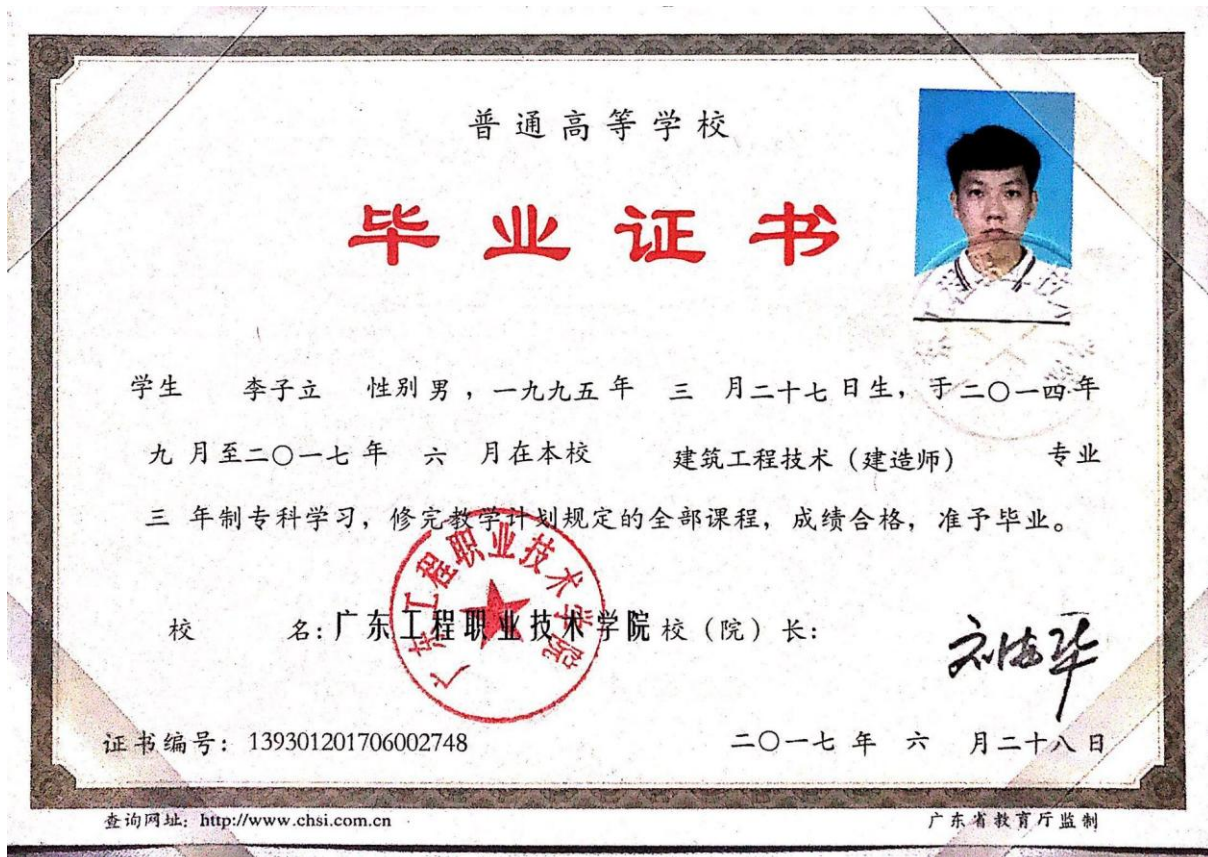 普通高等学校
毕业证书
学生 李子立 性别 男 ，一九九五 年 三 月二十七 日生，于二〇一四年
九 月至二〇一七 年 六 月在本校 建筑工程技术（建造师） 专业
三 年制专科学习，修完教学计划规定的全部课程，成绩合格，准予毕业。
广东工程职业技术学院
校 名：广东工程职业技术学院 校（院）长：
证书编号：139301201706002748 二〇一七 年 六 月二十八 日
查询网址：http://www.chsi.com.cn 广东省教育厅监制